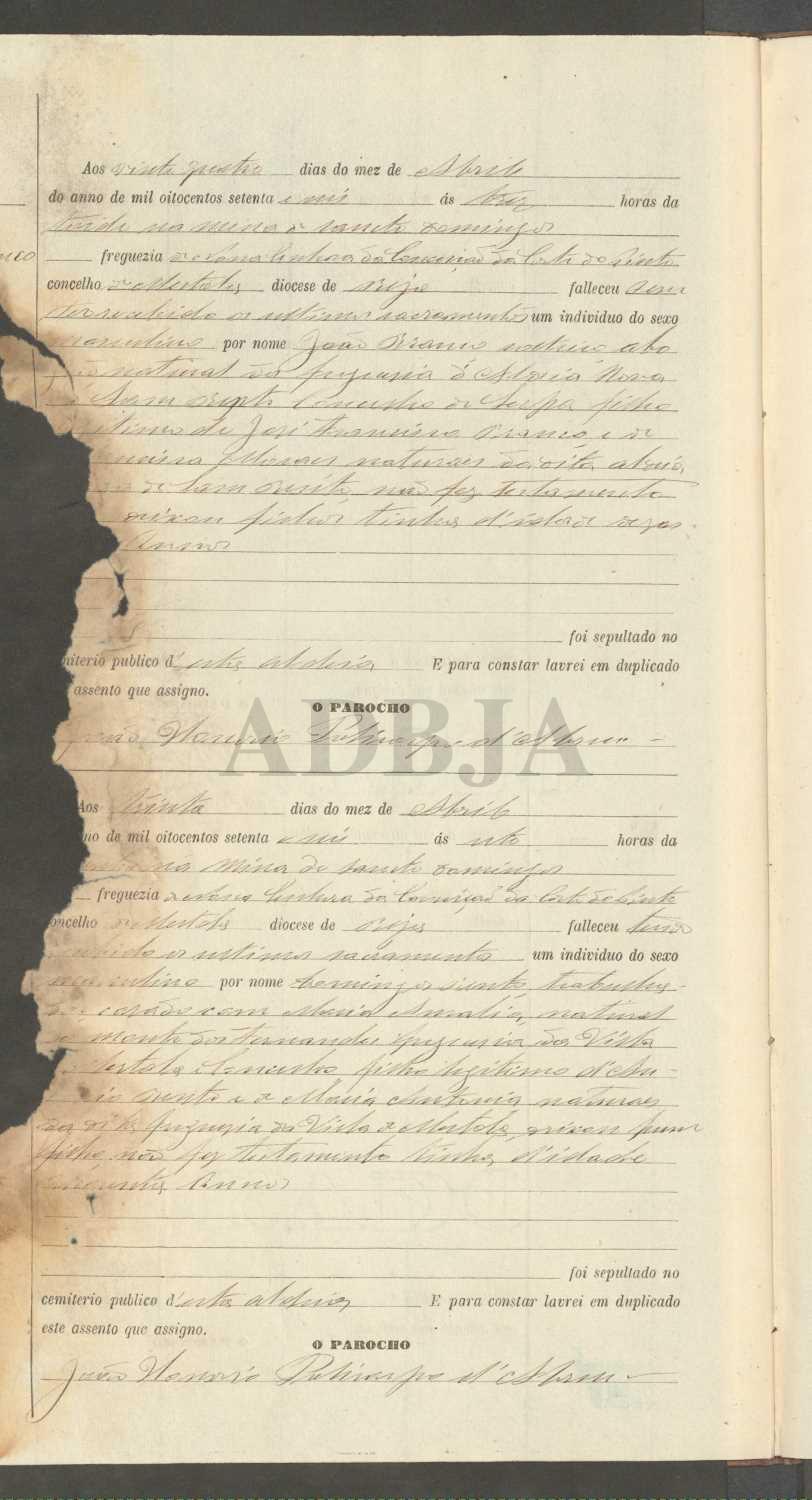 Aos vinte quatro dias do mez de Abril
do anno de mil oitocentos setenta e seis ás trez horas da
tarde na mina de sancto Domingos
freguezia de Nossa Senhora da Conceição da Corte do Pinto
concelho de Mertola diocese de Beja falleceu sem
ter recebido os ultimos sacramentos um individuo do sexo
masculino por nome João Branco solteiro
natural da freguesia d'Aldeia Nova
de Sam Bento Concelho de Serpa filho
de José Francisco Branco e de
Moraes naturaes da dita aldeia
de Sam Bento, não fez testamento
deixou filhos tinha d'idade
Annos
foi sepultado no
miterio publico d'esta aldeia E para constar lavrei em duplicado
assento que assigno.
O PAROCHO
João Honorio Policarpo d'Abreu
ADBJA
Aos trinta dias do mez de Abril
no de mil oitocentos setenta e seis ás oito horas da
na Mina de sancto Domingos
freguezia de Nossa Senhora da Conceição da Corte do Pinto
oncelho de Mertola diocese de Beja falleceu tendo
recebido os ultimos sacramentos um individuo do sexo
masculino por nome Domingos Bento, trabalha-
dor, casado com Maria Amalia, natural
do monte dos Fernandes freguesia da Villa
de Mertola e Concelho filho legitimo d'An-
tonio Bento e de Maria Antonia naturaes
da dita freguesia da Villa de Mertola, deixou hum
filho, não fez testamento tinha d'idade
Annos
foi sepultado no
cemiterio publico d'esta aldeia E para constar lavrei em duplicado
este assento que assigno.
O PAROCHO
João Honorio Policarpo d'Abreu